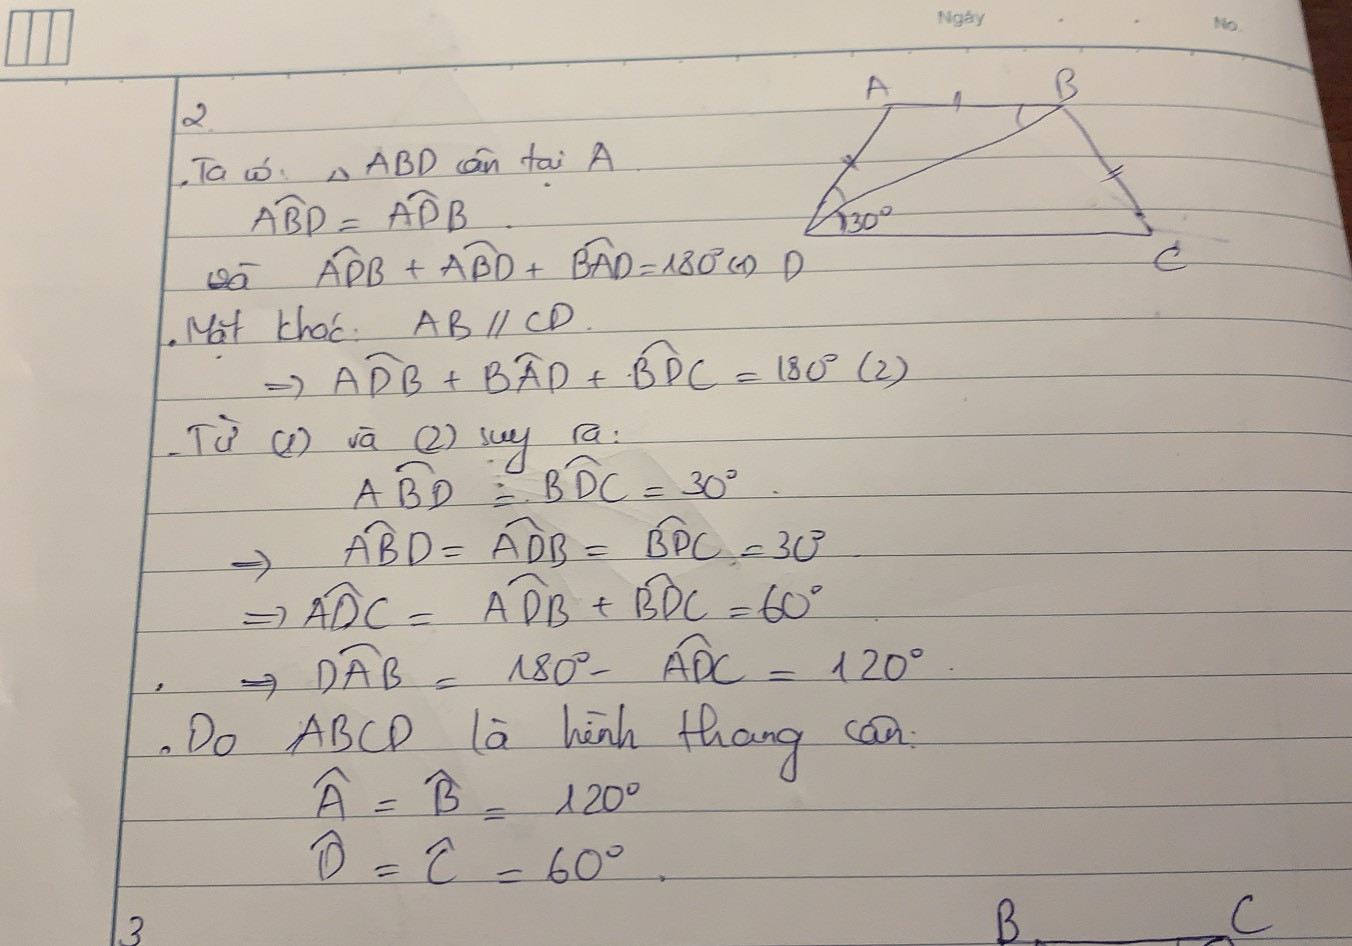 Ngày . . No.
2.
A B
. Ta có: △ ABD cân tại A
ABD̂ = ADB̂ .
30°
và ADB̂ + ABD̂ + BAD̂ = 180° (1) D
C
. Mặt khác: AB // CD.
=> ADB̂ + BAD̂ + BDĈ = 180° (2)
- Từ (1) và (2) suy ra:
ABD̂ = BDĈ = 30° .
=> ABD̂ = ADB̂ = BDĈ = 30°
=> ADĈ = ADB̂ + BDĈ = 60°
. => DAB̂ = 180° - ADĈ = 120° .
. Do ABCD là hình thang cân:
Â = B̂ = 120°
D̂ = Ĉ = 60° .
B C
3